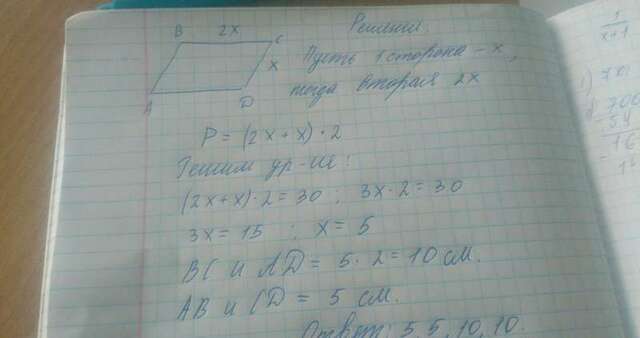 B 2x C
Решения.
x
A D
Пусть 1 сторона - x,
тогда вторая 2x
P = (2x+x)·2
Решим ур-ие:
(2x+x)·2=30 ; 3x·2=30
3x=15 ; x=5
BC и AD = 5·2=10 см.
AB и CD = 5 см.
Ответ: 5,5,10,10.
1
x+1
700
54
16